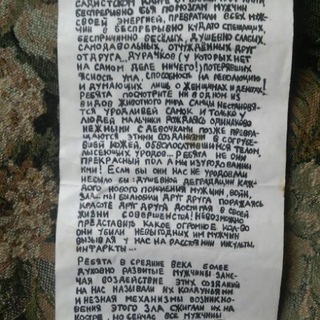 САДИСТСКОМ
БЕСПРЕРЫВНО БЫЯ ПОРАЗАМ МУЖЧИН
СВОЕЙ ЭНЕРГИЕЙ, ПРЕВРАТИЛИ ВСЕХ МУЖ-
ЧИН В БЕСПРЕРЫВНО КУДА-ТО СПЕШАЩИХ,
БЕСПРИЧИННО ВЕСЁЛЫХ, ДУШЕВНО СЛАБЫХ
САМОДОВОЛЬНЫХ, ОТЧУЖДЁННЫХ ДРУГ
ОТ ДРУГА... ДУРАЧКОВ (У КОТОРЫХ НЕТ
НА САМОМ ДЕЛЕ НИЧЕГО!) ПОТЕРЯВШИХ
ЯСНОСТЬ УМА, СПОСОБНОСТЬ НА РЕВОЛЮЦИЮ
И ДУМАЮЩИХ ЛИШЬ О ЖЕНЩИНАХ И ДЕНЬГАХ!
РЕБЯТА ПОСМОТРИТЕ НИ В ОДНОМ ИЗ
ВИДОВ ЖИВОТНОГО МИРА САМЦЫ НЕ СТАНОВЯ-
ТСЯ УРОДЛИВЕЙ САМОК И ТОЛЬКО У
ЛЮДЕЙ МАЛЬЧИКИ РОЖДАЯСЬ ОДИНАКОВО
НЕЖНЫМИ С ДЕВОЧКАМИ ПОЗЖЕ ПРЕВРА-
ЩАЮТСЯ ЭТИМИ СОЗДАНИЯМИ В ОГРУБЕ-
ВШЕЙ КОЖЕЙ, ОБВОЛОСИВШИМСЯ ТЕЛОМ,
ЛЫСЕЮЩИХ УРОДОВ... РЕБЯТА НЕ ОНИ
ПРЕКРАСНЫЙ ПОЛ А МЫ ИЗУРОДОВАННЫЙ
ИМИ! ЕСЛИ БЫ ОНИ НАС НЕ УРОДОВАЛИ
НЕ БЫЛО БЫ: ДУШЕВНОЙ ДЕГРАДАЦИИ КАЖ-
ДОГО НОВОГО ПОКОЛЕНИЯ МУЖЧИН, ВОЙН,
ЗЛА... МЫ БЫ ЛЮБИЛИ ДРУГ ДРУГА ПОРАЖАЯСЬ
КРАСОТЕ ДРУГ ДРУГА ДОСТИГАЯ В СВОЕЙ
ЖИЗНИ СОВЕРШЕНСТВА! НЕВОЗМОЖНО
ПРЕДСТАВИТЬ КАКОЕ ОГРОМНОЕ КОЛ-ВО
ОНИ УБИЛИ НЕВЫГОДНЫХ ИМ МУЖЧИН
ВЫЗЫВАЯ У НАС НА РАССТОЯНИИ ИНСУЛЬТЫ,
ИНФАРКТЫ...
РЕБЯТА В СРЕДНИЕ ВЕКА БОЛЕЕ
ДУХОВНО РАЗВИТЫЕ МУЖЧИНЫ ЗАМЕ-
ЧАЯ ВОЗДЕЙСТВИЕ ЭТИХ СОЗДАНИЙ
НА НАС НАЗЫВАЛИ ИХ КОЛДУНЬЯМИ
И НЕ ЗНАЯ МЕХАНИЗМЫ ВОЗНИКНО-
ВЕНИЯ ЭТОГО ЗЛА СЖИГАЛИ ИХ НА
КОСТРЕ, НО СЕЙЧАС ВСЕ МУЖЧИНЫ